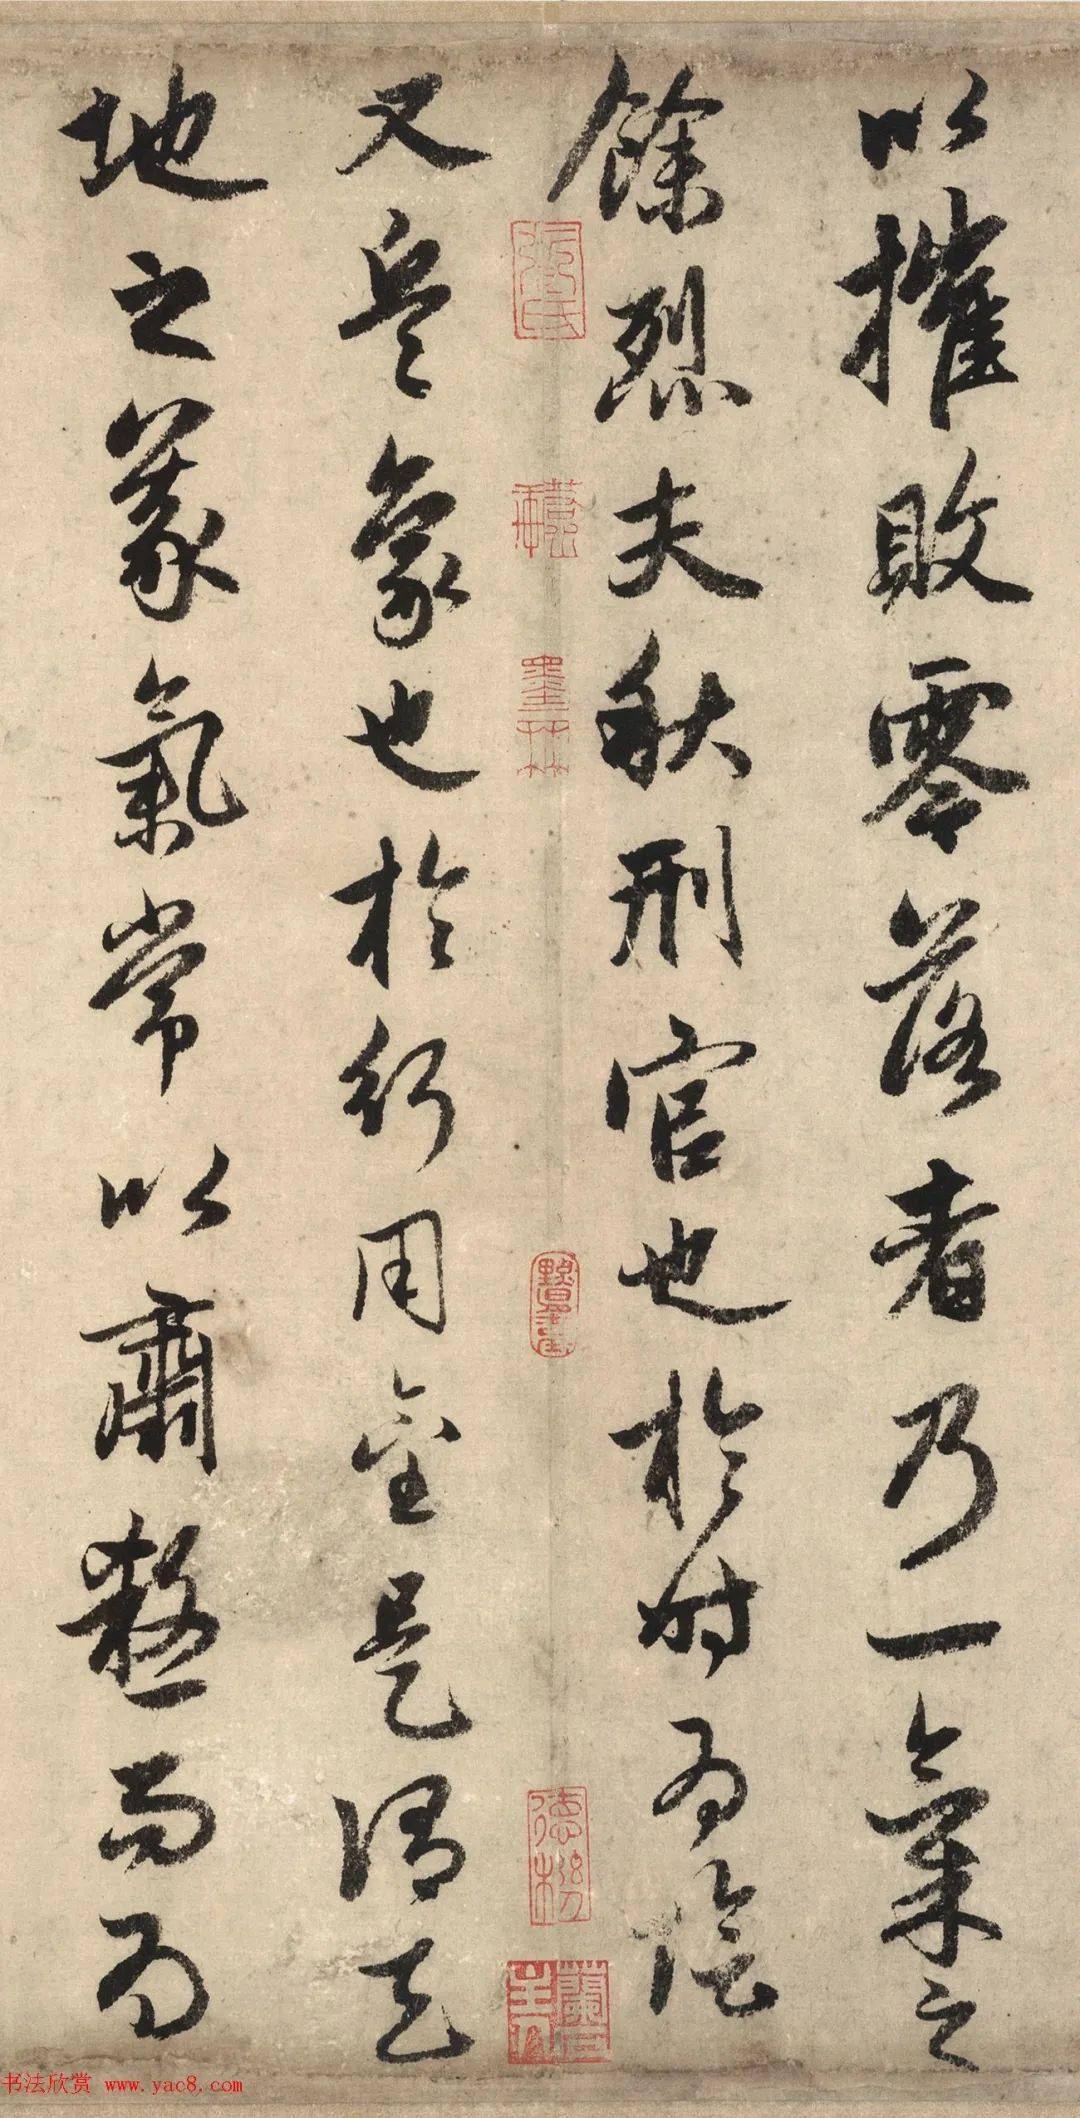 以摧敗零落者乃一氣之
餘烈夫秋刑官也於時為陰
又兵象也於行用金是謂天
地之義氣常以肅殺而為
墨林
书法欣赏 www.yac8.com